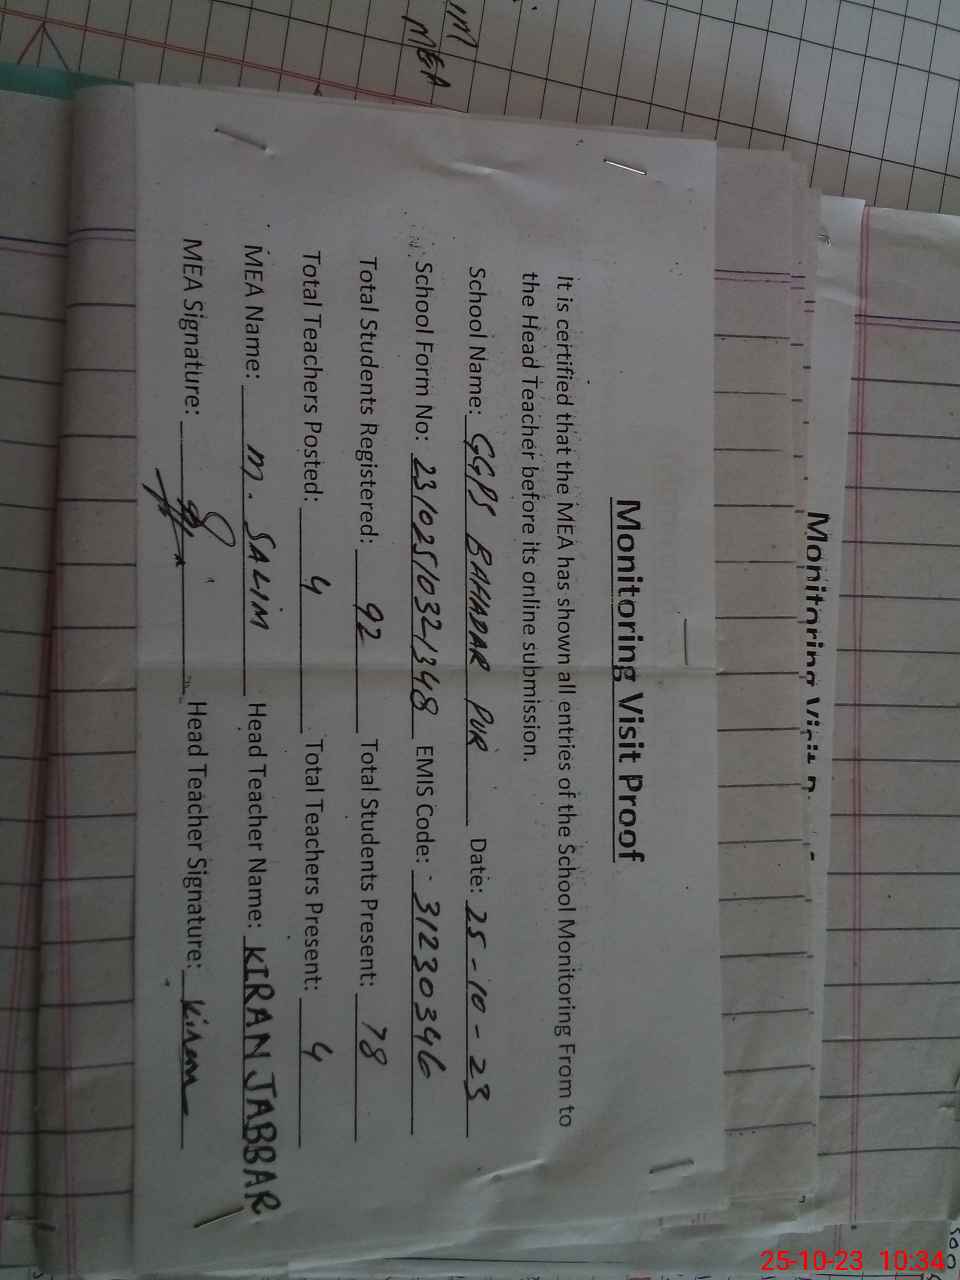 IM
MEA
Monitoring Visit
Monitoring Visit Proof
It is certified that the MEA has shown all entries of the School Monitoring From to
the Head Teacher before its online submission.
School Name: GGPS BAHADAR PUR Date: 25-10-23
School Form No: 23102510321348 EMIS Code: 31230346
Total Students Registered: 92 Total Students Present: 78
Total Teachers Posted: 4 Total Teachers Present: 4
MEA Name: M. SALIM Head Teacher Name: KIRAN JABBAR
MEA Signature: Head Teacher Signature: Kiran
25-10-23 10:34